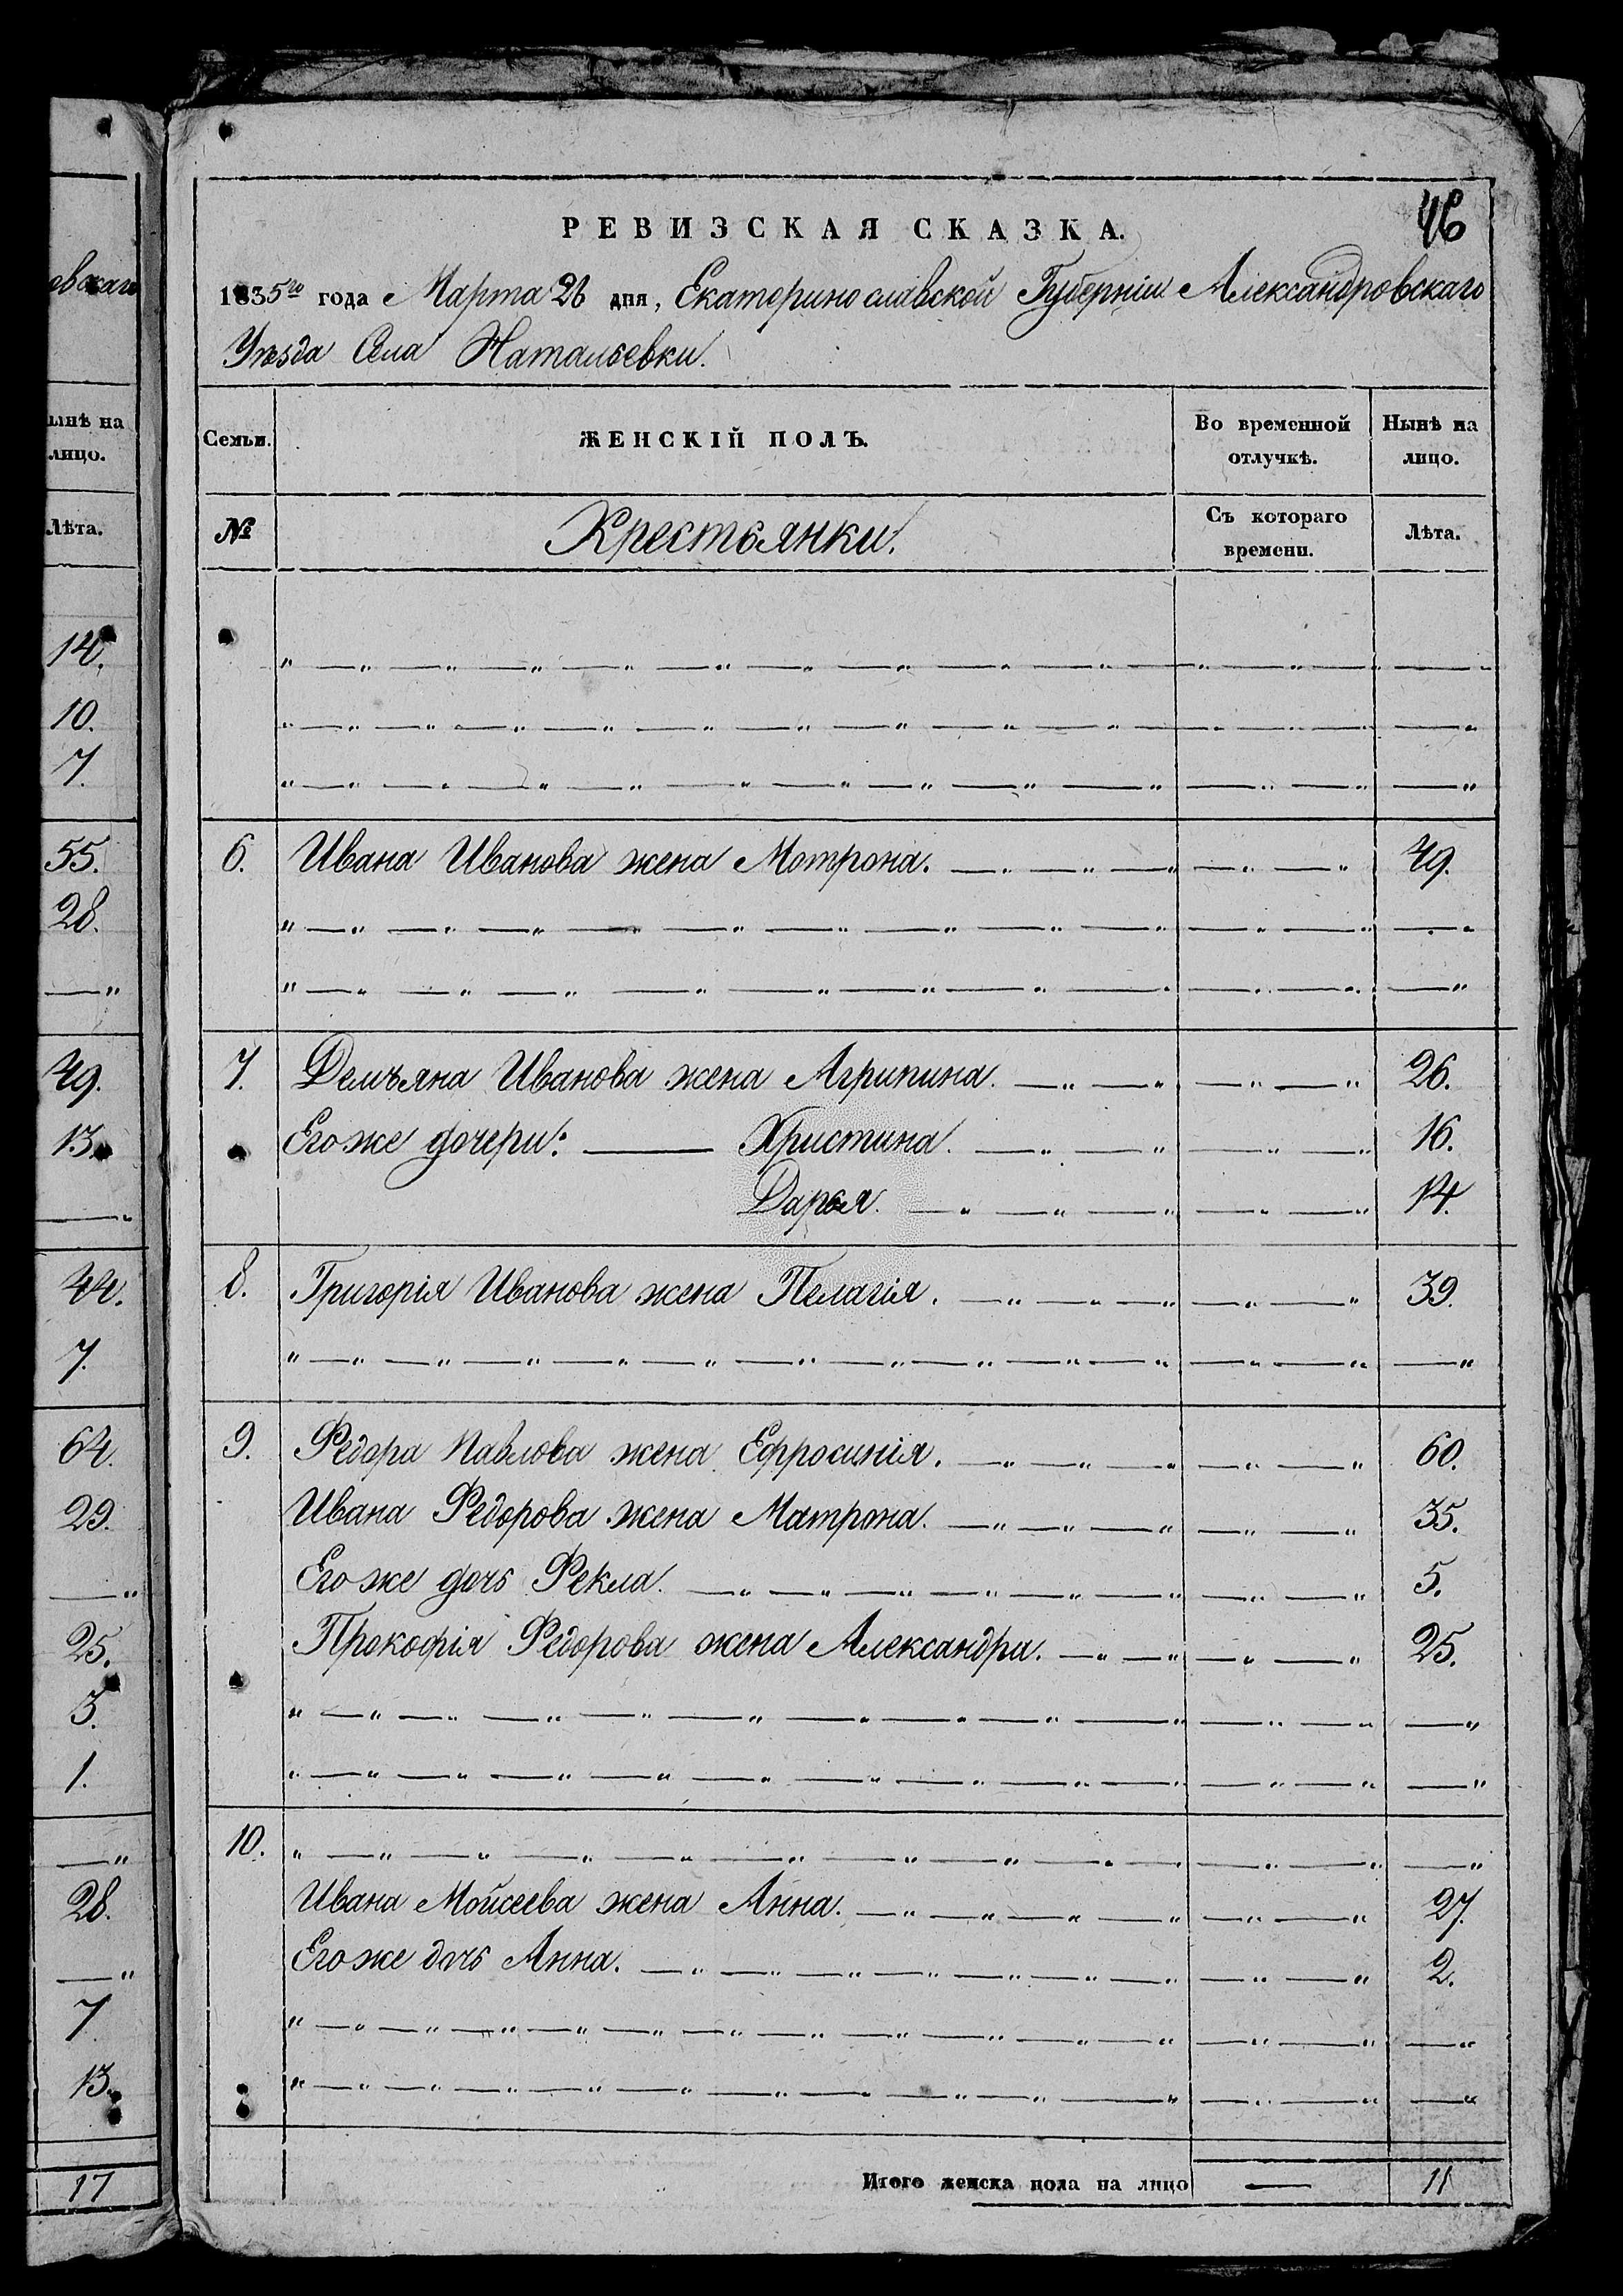 46
РЕВИЗСКАЯ СКАЗКА.
1835го года Марта 26 дня, Екатеринославской Губерніи Александровскаго
Уѣзда Села Натальевки.
Семьи. ЖЕНСКІЙ ПОЛЪ. Во временной отлучкѣ. Нынѣ на лицо.
№ Крестьянки. Съ котораго времени. Лѣта.
6. Ивана Иванова жена Мотрона. 49.
7. Демъяна Иванова жена Агрипина. 26.
Егоже дочери: Христина. 16.
Дарья. 14.
8. Григорія Иванова жена Пелагія. 39.
9. Федора Павлова жена Ефросинія. 60.
Ивана Федорова жена Матрона. 35.
Егоже дочь Фекла. 5.
Прокофія Федорова жена Александра. 25.
10.
Ивана Мойсеева жена Анна. 27.
Егоже дочь Анна. 2.
Итого женска пола на лицо — 11
евскаго
ынѣ на
лицо.
Лѣта.
14.
10.
7.
55.
28.
49.
13.
44.
7.
64.
29.
25.
3.
1.
28.
7.
13.
17